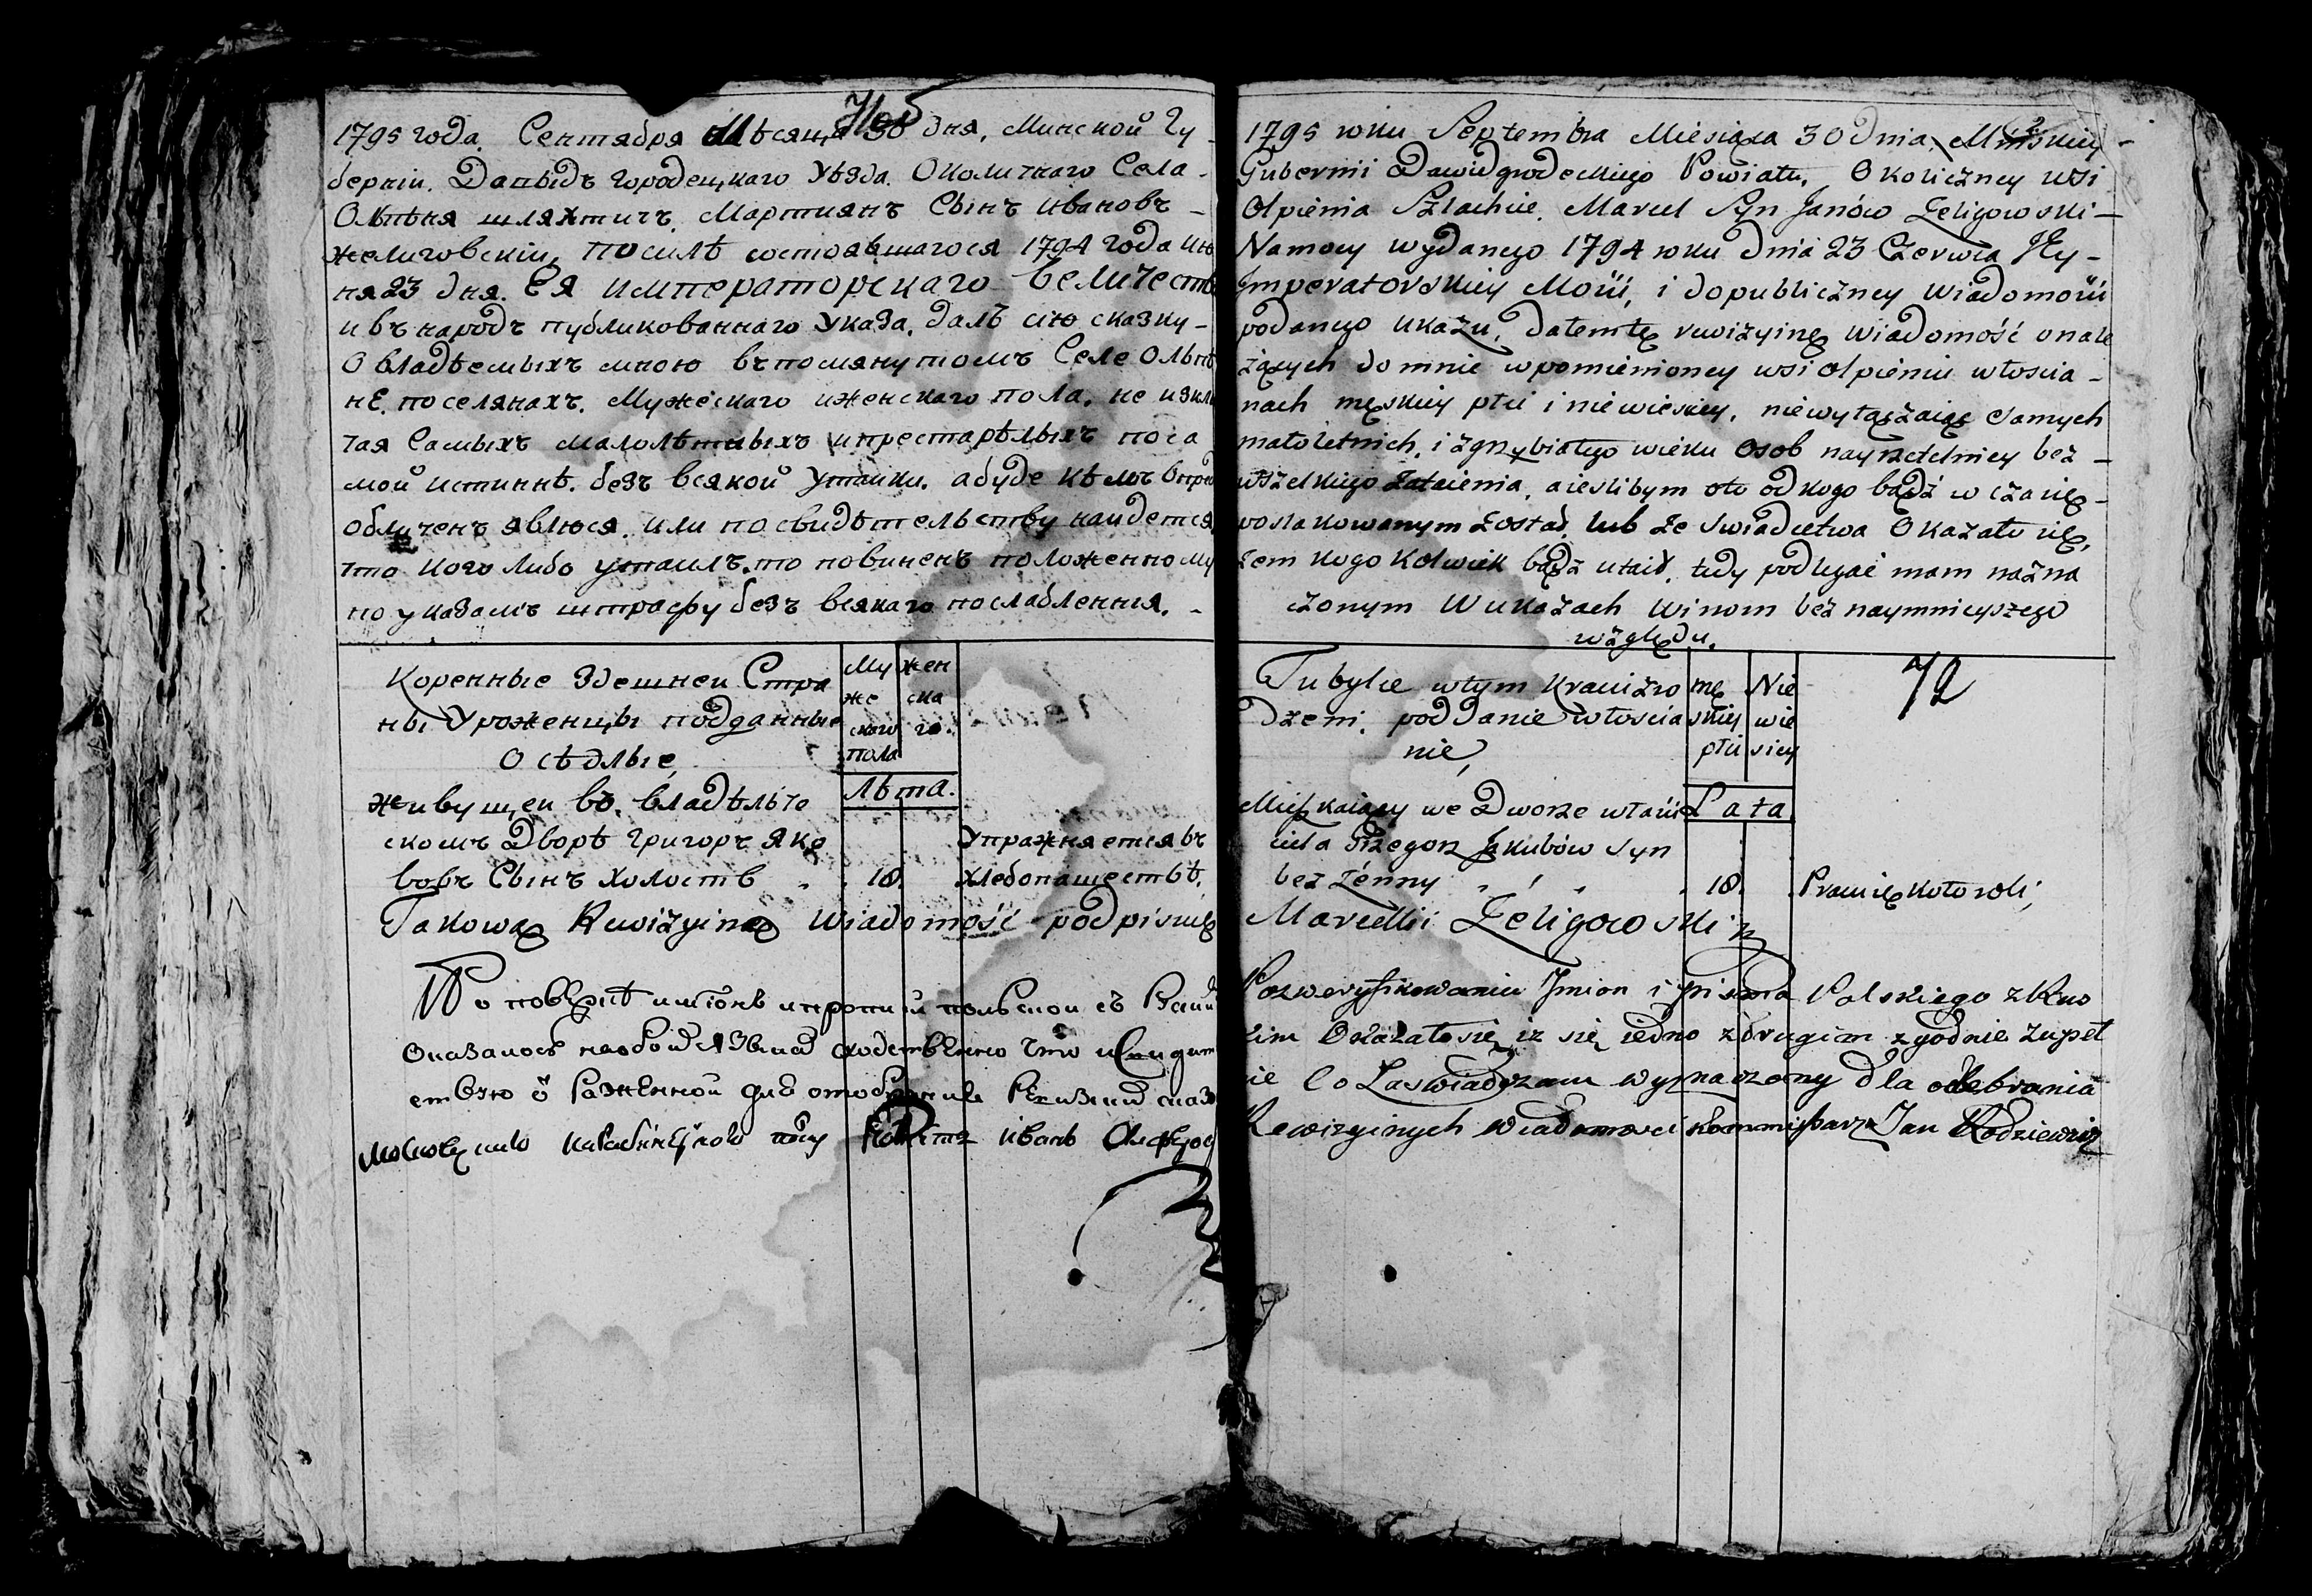 1795 года. Сентября Мѣсяца 30 дня, Минской Гу-
берніи. Давыдъ городецкаго Уѣзда. Околичнаго Села-
Олпѣня шляхтичъ. Мартиянъ Сынъ Ивановъ-
желиговскіи, по силѣ состоявшагося 1794 года ию
ня 23 дня. Ея императорскаго величеств
и въ народъ публикованнаго Указа. далъ сию сказку-
О владѣемыхъ мною въ помянутомъ Селе Ольпѣ
нѣ. поселянахъ. Мужескаго и женскаго пола. не изкл
чая Самыхъ малолѣтныхъ и престарѣлыхъ по са
мой истиннѣ. безъ всякой Утайки. а буде кѣмъ впред
обличенъ явлюся. или по свидѣтельству найдется
что кого либо утаилъ. то повиненъ положенному
по указамъ штрафу безъ всякаго послабления. -
Коренные Здешней Стра
ны Уроженцы подданные
Осѣдлые,
Му же ского пола
жен ска го.
лѣта.
живущеи въ. владѣлче
скомъ Дворѣ Григоръ Яко
вовъ Сынъ холостъ 18.
Упражняется въ
хлебопашествѣ.
Takowąę Rewiżyinąę Wiadomość podpisuię
По повѣрке имíонъ
Оказалось что
1795 roku Septembra Miesiąca 30 Dnia, Minskiey
Gubernii Dawidgrodeckiego Powiatu, Okoliczney wsi
Olpienia Szlachcic. Marcel Syn Janów Żeligowski-
Na mocy wydanego 1794 roku dnia 23 Czerwca Jey-
Imperatorskiey Mości, i do publiczney wiadomości
podanego ukazu, dałem tę rewiżyinę Wiadomość o nale
żących do mnie w pomienioney wsi Olpieniu włościa-
nach męskiey płci i niewieściey, niewyłączaiąc samych
małoletnich, i zgrzybiałego wieku osob nayrzetelniey bez-
wszelkiego zataienia, a ieslibym oto od kogo bądź w czasie-
poszlakowanym został, lub ze swiadectwa Okazało się,
żem kogo kolwiek bądź utaił, tedy podlegać mam nazna
czonym w ukazach winom bez naymnieyszego
względu.
72
Tubylce w tym kraiu zro
dzeni, poddanie włościa
nie,
mę skiey płci
Nie wie sciey
Lata
Mieszkaiący we Dworze właści
ciela Grzegorz Jakubów syn
bez żenny 18.
Pracuię koło roli,
Marcelli Żeligowski
Po zweryfikowaniu Imion i pisma Polskiego z Rus
kim Okazało się iż się iedno z drugim zgodnie zupeł
ie Co Zaswiadczam wyznaczony dla odebrania
Rewizyinych Wiadomosci kommissarz Jan Kodziewicz